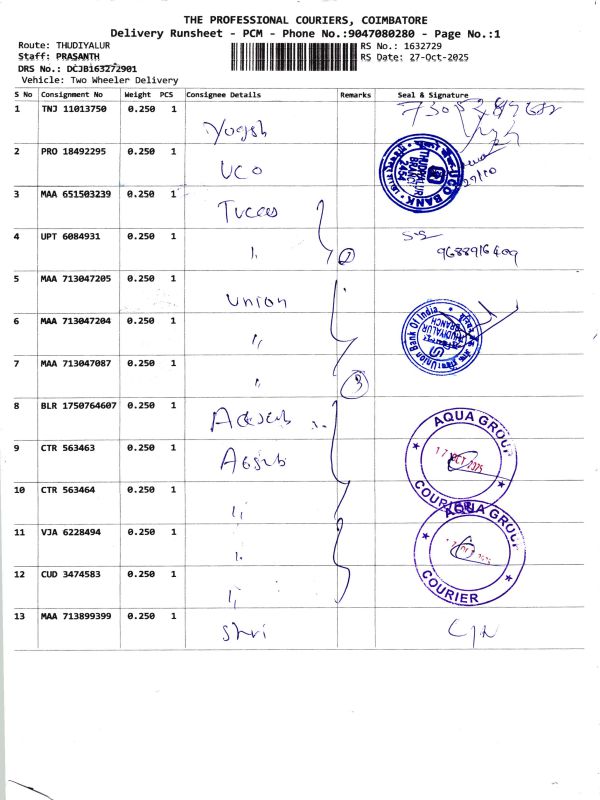 THE PROFESSIONAL COURIERS, COIMBATORE
Delivery Runsheet - PCM - Phone No.:9047080280 - Page No.:1
Route: THUDIYALUR RS No.: 1632729
Staff: PRASANTH RS Date: 27-Oct-2025
DRS No.: DCJB163272901
Vehicle: Two Wheeler Delivery
S No Consignment No Weight PCS Consignee Details Remarks Seal & Signature
1 TNJ 11013750 0.250 1 Yogesh
2 PRO 18492295 0.250 1 UCO UCO BANK THUDIYALUR BRANCH 2454 27/10
3 MAA 651503239 0.250 1 Tuccas
4 UPT 6084931 0.250 1 " 2 9688916409
5 MAA 713047205 0.250 1 Union
6 MAA 713047204 0.250 1 " Union Bank Of India THUDIYALUR BRANCH
7 MAA 713047087 0.250 1 " 3
8 BLR 1750764607 0.250 1
9 CTR 563463 0.250 1 AQUA GROUP 17 OCT 2025 COURIER
10 CTR 563464 0.250 1 "
11 VJA 6228494 0.250 1 " AQUA GROUP COURIER
12 CUD 3474583 0.250 1 "
13 MAA 713899399 0.250 1 Shri